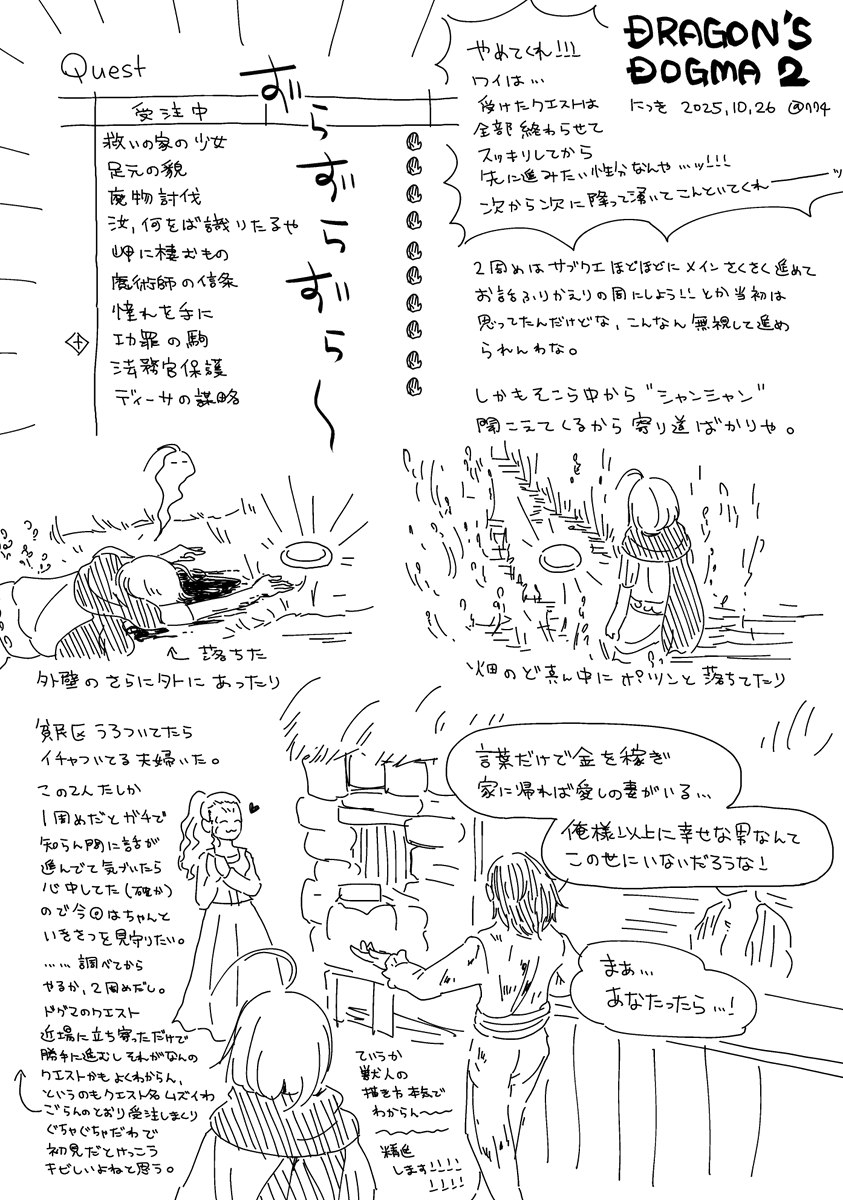 DRAGON'S
DOGMA 2
にっき 2025.10.26
Quest
受注中
救いの家の少女
足元の貌
廃物討伐
汝、何をば識りたるや
岬に棲むもの
魔術師の信条
憧れを手に
功罪の駒
法務官保護
ディーサの謀略
ずらずらずら〜
やめてくれ!!!
ワイは…
受けたクエストは
全部終わらせて
スッキリしてから
先に進みたい性分なんや…ッ!!!
次から次に降って湧いてこんといてくれーーーッ
2周めはサブクエほどほどにメインさくさく進めて
お話ふりかえりの周にしよう!!とか当初は
思ってたんだけどな、こんなん無視して進め
られんわな。
しかもそこら中から"シャンシャン"
聞こえてくるから寄り道ばかりや。
↑落ちた
外壁のさらに外にあったり
畑のど真ん中にポツンと落ちてたり
貧民区うろついてたら
イチャついてる夫婦いた。
この2人たしか
1周めだとガチで
知らん間に話が
進んでて気づいたら
心中してた(確か)
ので今回はちゃんと
いきさつを見守りたい。
……調べてから
やるか、2周めだし。
ドグマのクエスト
近場に立ち寄っただけで
勝手に進むしそれがなんの
クエストかもよくわからん、
というのもクエスト名ムズイわ
ごらんのとおり受注しまくり
ぐちゃぐちゃだわで
初見だとけっこう
キビしいよねと思う。
言葉だけで金を稼ぎ
家に帰れば愛しの妻がいる…
俺様以上に幸せな男なんて
この世にいないだろうな!
まぁ…
あなたったら…!
ていうか
獣人の
描き方本気で
わからん〜〜
〜〜〜
精進
します!!!!
!!!!